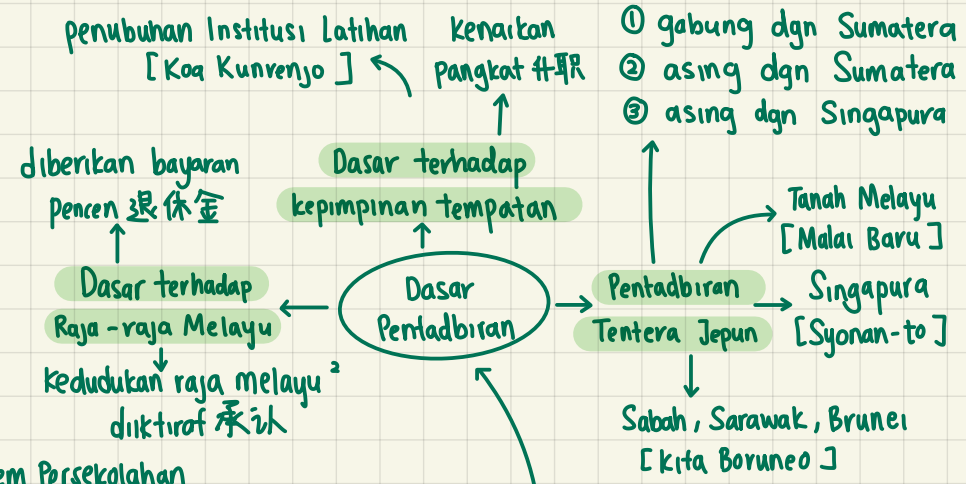 penubuhan Institusi Latihan
[Koa Kunrenjo]
kenaikan
pangkat 升职
① gabung dgn Sumatera
② asing dgn Sumatera
③ asing dgn Singapura
diberikan bayaran
pencen 退休金
Dasar terhadap
kepimpinan tempatan
Tanah Melayu
[Malai Baru]
Dasar terhadap
Raja-raja Melayu
Dasar
Pentadbiran
Pentadbiran
Tentera Jepun
Singapura
[Syonan-to]
Kedudukan raja melayu²
diiktiraf 承认
Sabah, Sarawak, Brunei
[Kita Boruneo]
em Persekolahan